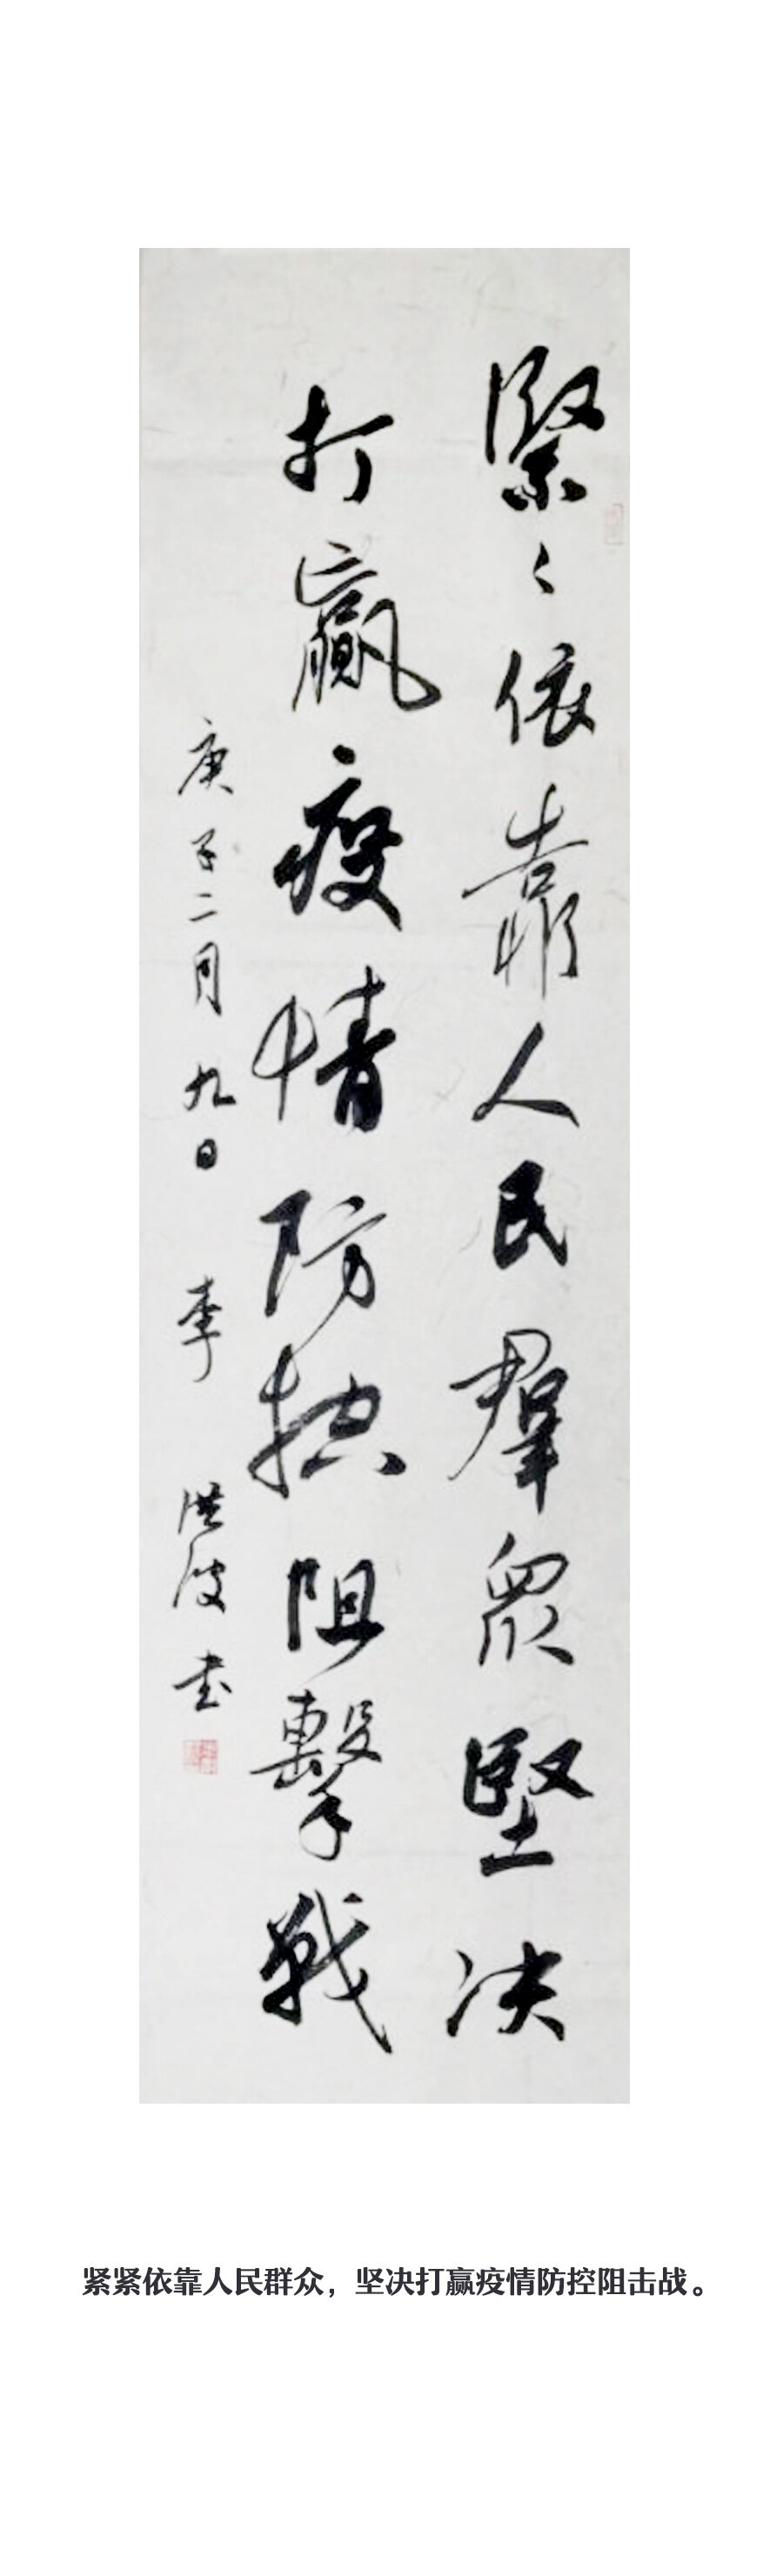 緊〻依靠人民群眾堅决
打贏疫情防控阻擊戰
庚子二月九日 李洪波书
紧紧依靠人民群众，坚决打赢疫情防控阻击战。